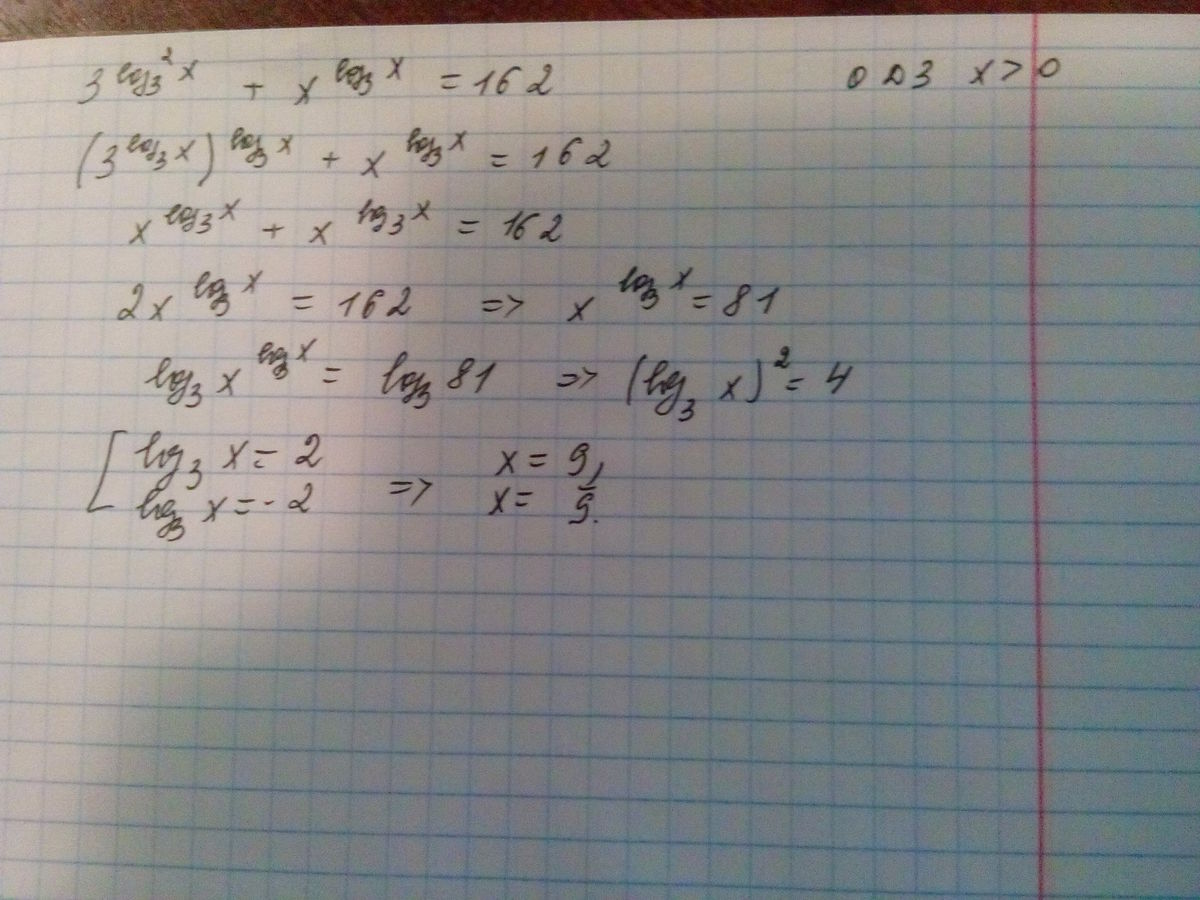 3^(log₃² x) + x^(log₃ x) = 162    ОДЗ x > 0
(3^(log₃ x))^(log₃ x) + x^(log₃ x) = 162
x^(log₃ x) + x^(log₃ x) = 162
2x^(log₃ x) = 162 => x^(log₃ x) = 81
log₃ x^(log₃ x) = log₃ 81 => (log₃ x)² = 4
[ log₃ x = 2 => x = 9,
log₃ x = -2 x =